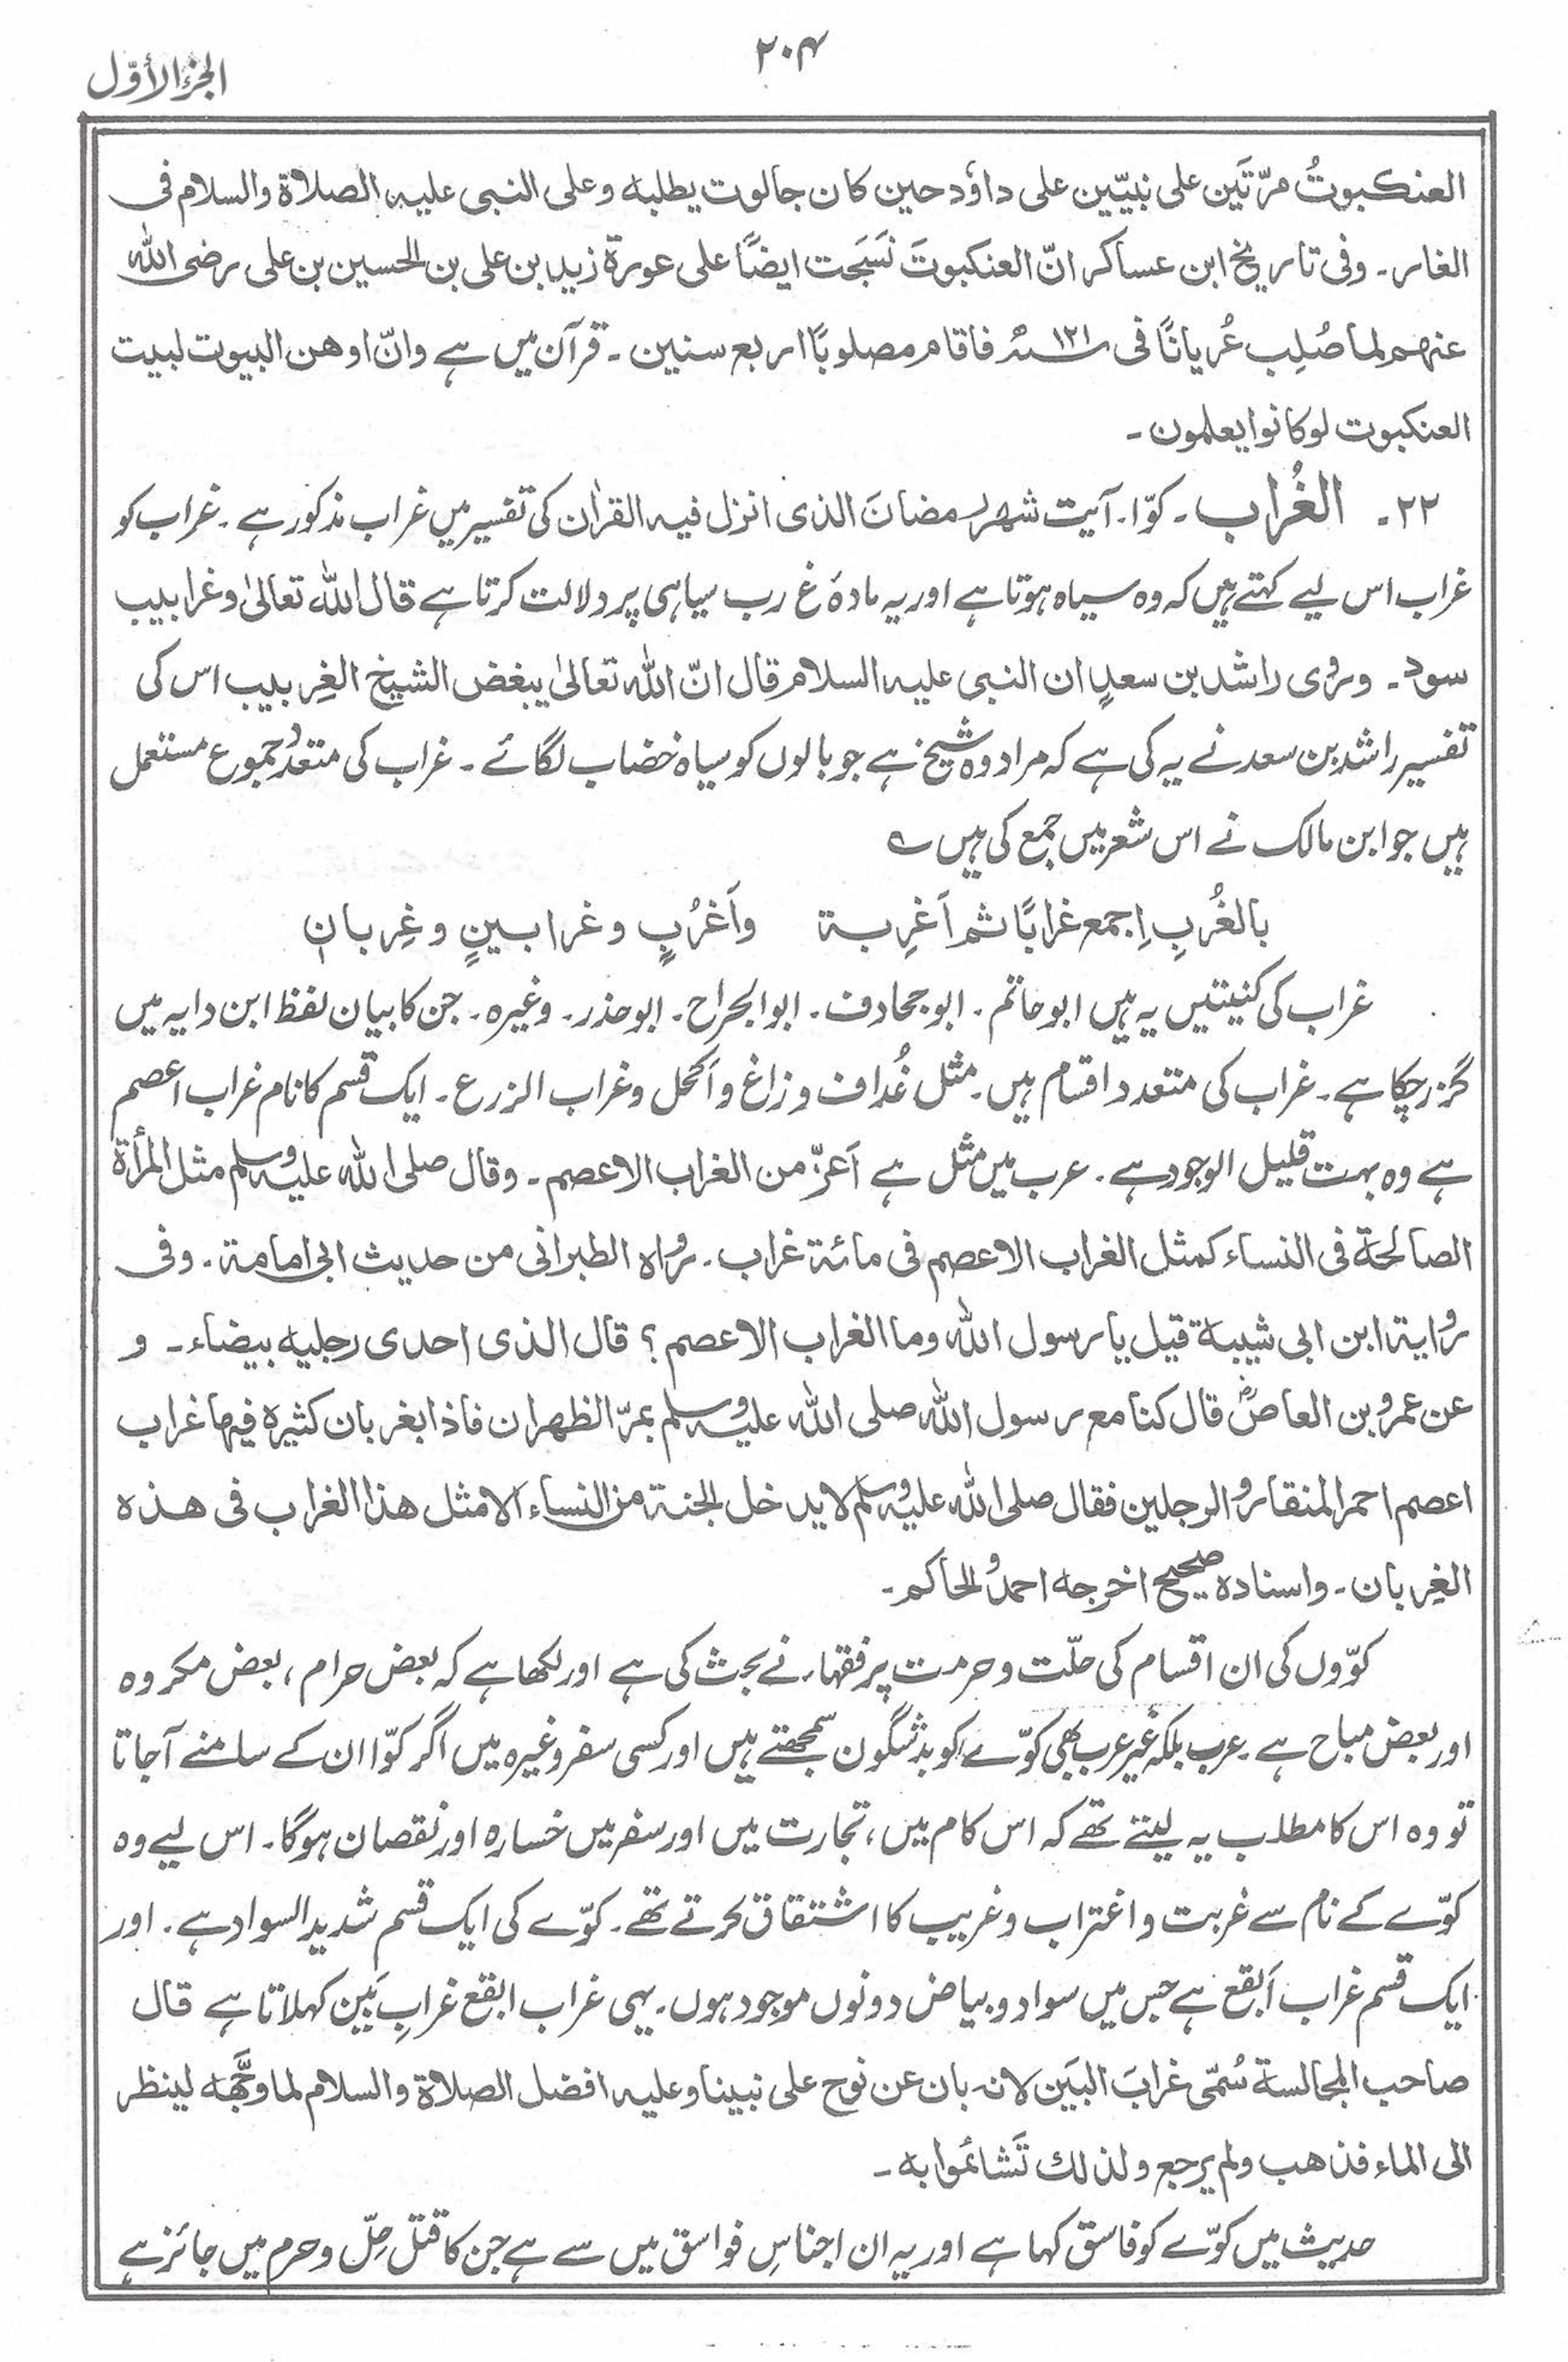 ۲۰۴
الجزء الأوّل
العنكبوتُ مرّتَين على نبيّين على داؤد حين كان جالوت يطلبه وعلى النبى عليه الصلاة والسلام فى
الغار۔ وفى تاريخ ابن عساكر انّ العنكبوتَ نَسَجت ايضًا على عورة زيد بن على بن الحسين بن على رضى الله
عنهم لما صُلِب عُريانًا فى سنة ۱۲۱ فاقام مصلوبًا اربع سنين ۔ قرآن میں ہے وانّ اوهن البيوت لبيت
العنكبوت لوكانوا يعلمون ۔
۲۲۔ الغُراب ۔ کوّا ۔ آیت شهر رمضانَ الذى انزل فيه القراٰن کی تفسیر میں غراب مذکور ہے ۔ غراب کو
غراب اس لیے کہتے ہیں کہ وہ سیاہ ہوتا ہے اور یہ مادہ غ رب سیاہی پر دلالت کرتا ہے قال الله تعالىٰ وغرابيب
سود۔ وروى راشد بن سعدٍ ان النبى عليه السلام قال انّ الله تعالىٰ يبغض الشيخ الغِربيب اس کی
تفسیر راشد بن سعد نے یہ کی ہے کہ مراد وہ شیخ ہے جو بالوں کو سیاہ خضاب لگائے ۔ غراب کی متعدد جموع مستعمل
ہیں جو ابن مالک نے اس شعر میں جمع کی ہیں ؎
بالغُربِ اِجمع غرابًا ثم اَغرِبة واَغرُبٍ وغرابينٍ وغِربانِ
غراب کی کنیتیں یہ ہیں ابو حاتم ۔ ابو جحادف ۔ ابو الجراح ۔ ابو حذر ۔ وغیرہ ۔ جن کا بیان لفظ ابن دایہ میں
گزر چکا ہے ۔ غراب کی متعدد اقسام ہیں ۔ مثل غُداف و زاغ و اَکحل وغراب الزرع ۔ ایک قسم کا نام غراب اعصم
ہے وہ بہت قلیل الوجود ہے ۔ عرب میں مثل ہے اَعزّ من الغراب الاعصم ۔ وقال صلى الله عليه وسلم مثل المرأة
الصالحة فى النساء كمثل الغراب الاعصم فى مائة غراب ۔ رواه الطبرانى من حديث ابى امامة ۔ وفى
رواية ابن ابى شيبة قيل يا رسول الله وما الغراب الاعصم ؟ قال الذى احدى رجليه بيضاء ۔ و
عن عمرو بن العاصؓ قال كنا مع رسول الله صلى الله عليه وسلم بمرّ الظهران فاذا بغربان كثيرة فيها غراب
اعصم احمر المنقار والرجلين فقال صلى الله عليه وسلم لا يدخل الجنة من النساء الا مثل هذا الغراب فى هذه
الغِربان ۔ واسناده صحيح اخرجه احمد والحاكم ۔
کوّوں کی ان اقسام کی حلّت و حرمت پر فقہاء نے بحث کی ہے اور لکھا ہے کہ بعض حرام ، بعض مکروہ
اور بعض مباح ہے ۔ عرب بلکہ غیر عرب بھی کوّے کو بدشگون سمجھتے ہیں اور کسی سفر وغیرہ میں اگر کوّا ان کے سامنے آجاتا
تو وہ اس کا مطلب یہ لیتے تھے کہ اس کام میں ، تجارت میں اور سفر میں خسارہ اور نقصان ہوگا ۔ اس لیے وہ
کوّے کے نام سے غربت و اغتراب و غریب کا اشتقاق کرتے تھے ۔ کوّے کی ایک قسم شدید السواد ہے ۔ اور
ایک قسم غراب اَبقع ہے جس میں سواد و بیاض دونوں موجود ہوں ۔ یہی غراب ابقع غرابِ بَین کہلاتا ہے قال
صاحب المجالسة سُمّى غرابَ البَين لانه بان عن نوح على نبينا وعليه افضل الصلاة والسلام لما وجَّهه لينظر
الى الماء فذهب ولم يرجع ولذلك تَشائموا به ۔
حدیث میں کوّے کو فاسق کہا ہے اور یہ ان اجناسِ فواسق میں سے ہے جن کا قتل حِلّ و حرم میں جائز ہے